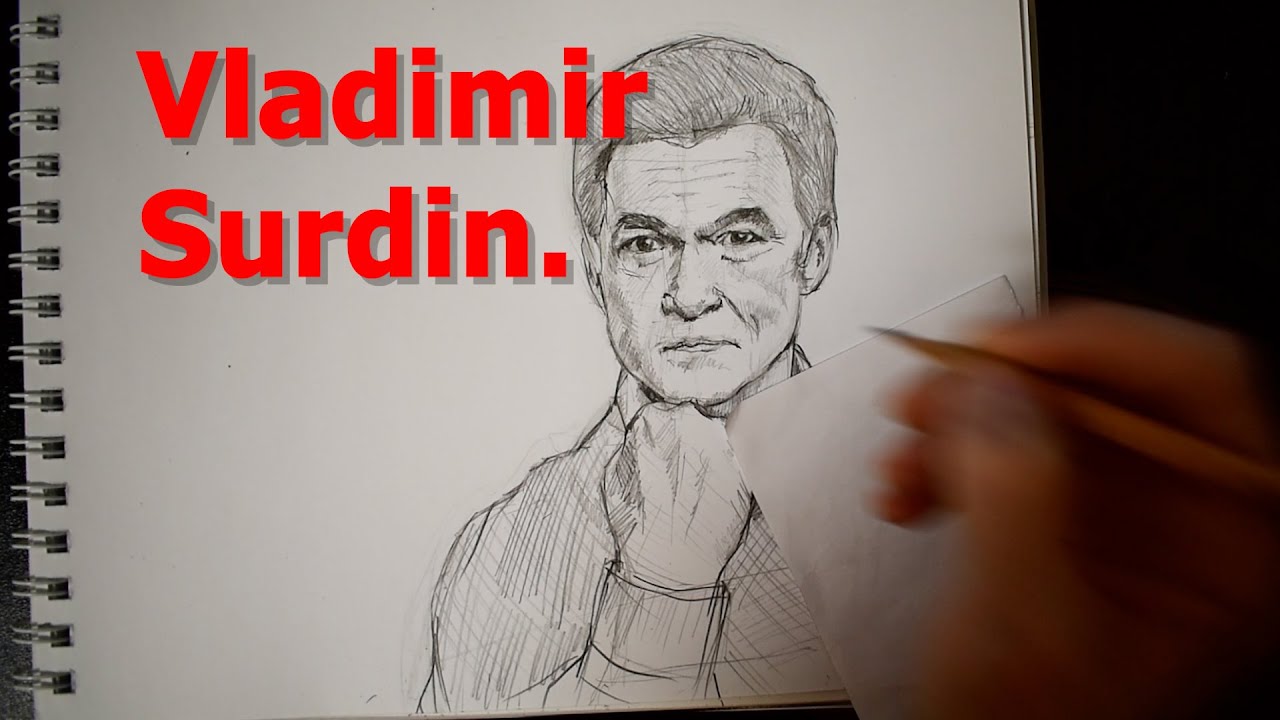 Vladimir
Surdin.